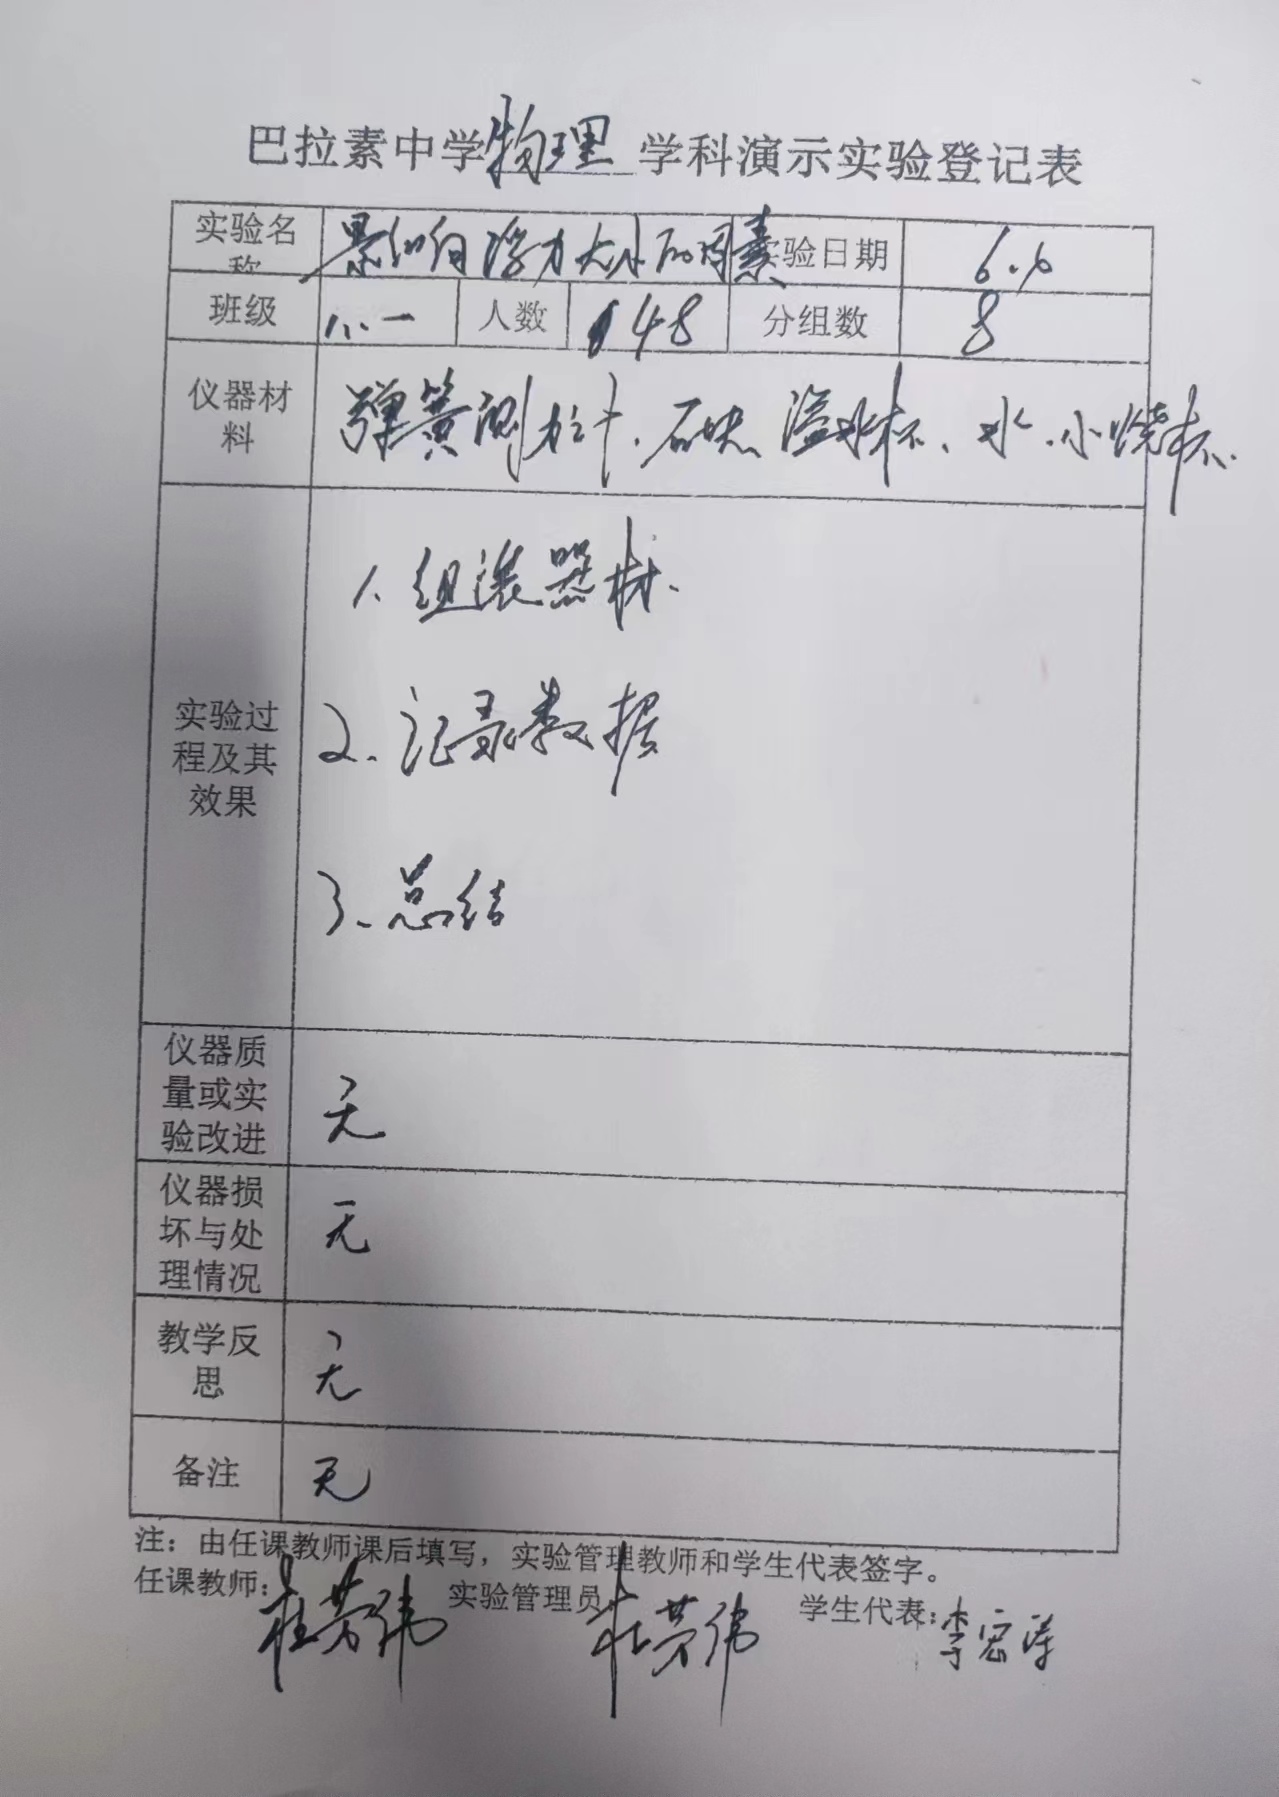 巴拉素中学物理学科演示实验登记表
实验名称 影响浮力大小的因素 实验日期 6.6
班级 八.一 人数 48 分组数 8
仪器材料 弹簧测力计、石块、溢水杯、水、小烧杯.
实验过程及其效果
1、组装器材.
2、记录数据
3、总结
仪器质量或实验改进 无
仪器损坏与处理情况 无
教学反思 无
备注 无
注：由任课教师课后填写，实验管理教师和学生代表签字。
任课教师：杜芳伟 实验管理员 杜芳伟 学生代表：李宏涛